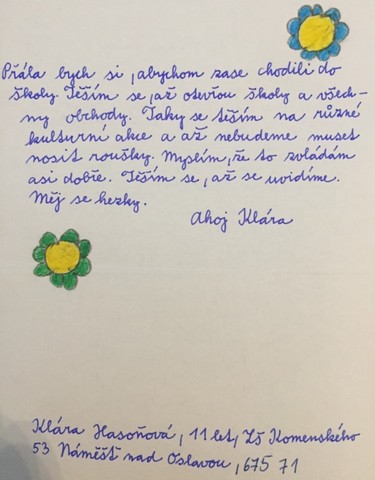 Přála bych si, abychom zase chodili do
školy. Těším se, až otevřou školy a všech-
ny obchody. Taky se těším na různé
kulturní akce a až nebudeme muset
nosit roušky. Myslím, že to zvládám
asi dobře. Těším se, až se uvidíme.
Měj se hezky.
Ahoj Klára
Klára Hasoňová, 11 let, Zš Komenského
53 Náměšť nad Oslavou, 675 71